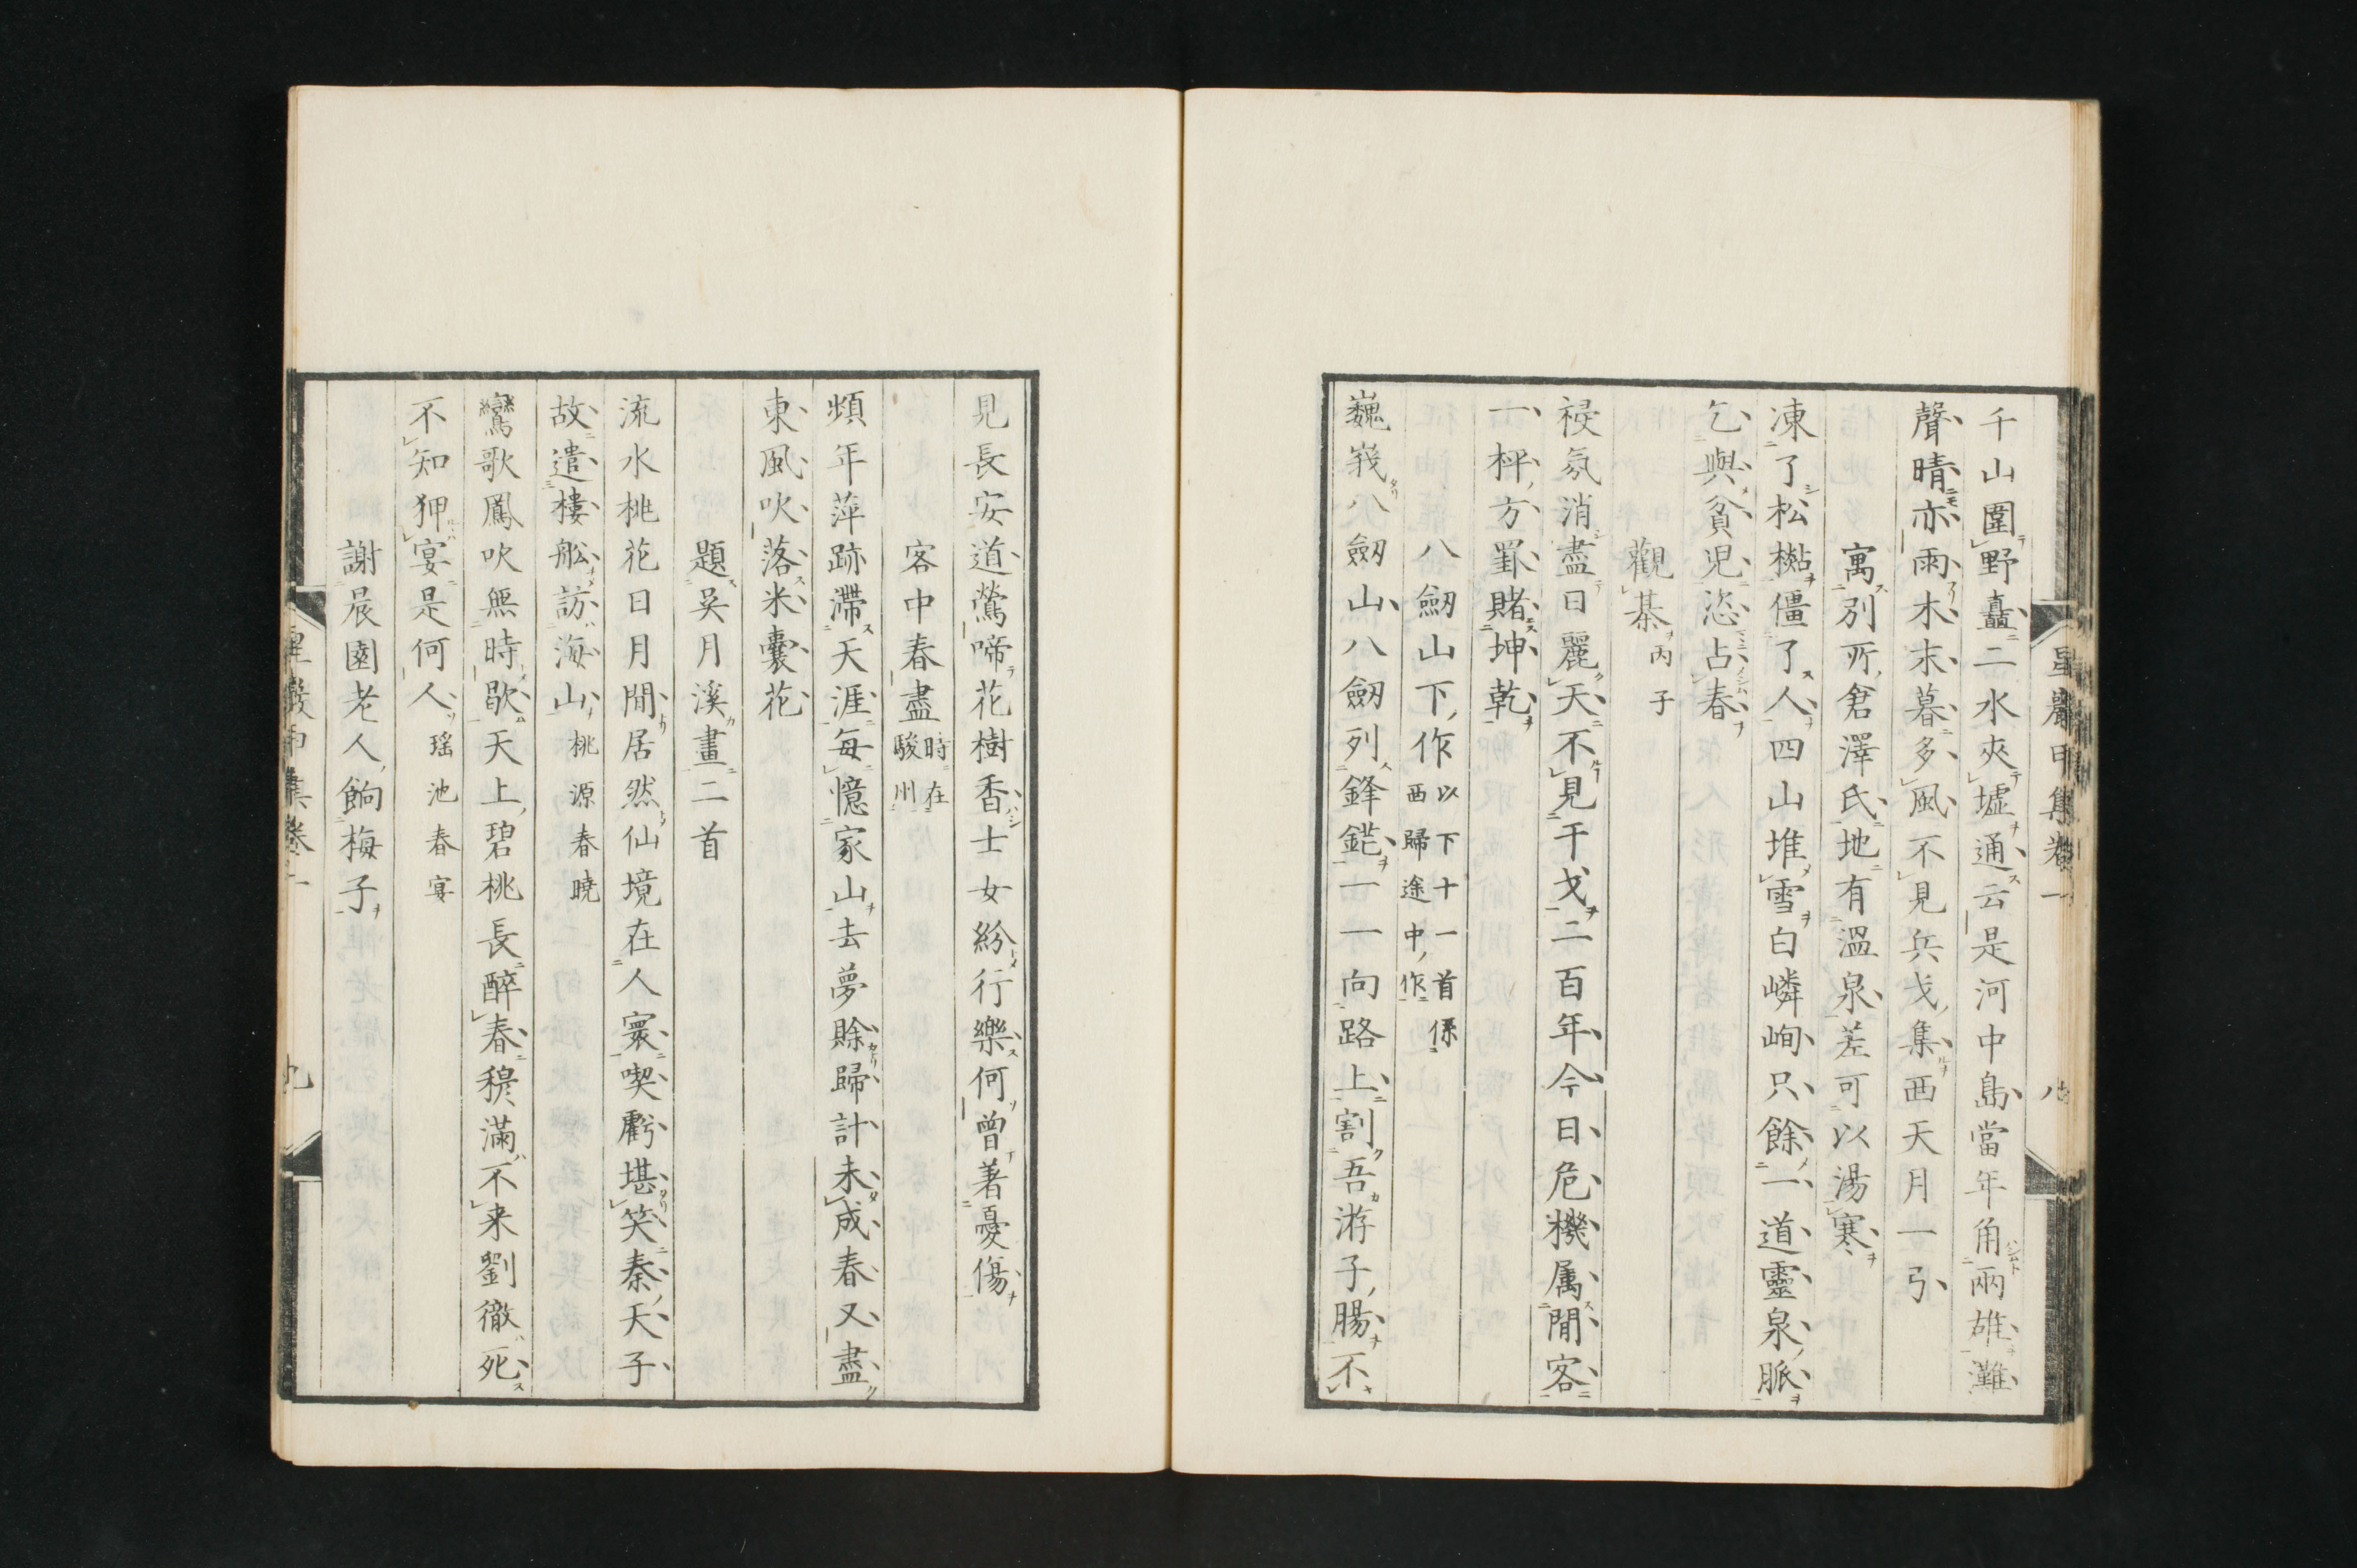 千山圍野矗二水夾墟通云是河中島當年角兩雄灘
聲晴亦雨木末暮多風不見兵戈集西天月一引
寓別所倉澤氏地有溫泉差可以湯寒
凍了松樾僵了人四山堆雪白嶙峋只餘一道靈泉脈
乞與貧児恣占春
觀棊丙子
祲氛消盡日麗天不見干戈二百年今日危機属閒客
一枰方罫賭坤乾
八劒山下作以下十一首係西歸途中作
巍峩八劒山八劒列鋒鋩一一向路上割吾游子膓不
星巖甲集卷一 八
見長安道鶯啼花樹香士女紛行樂何曾著憂傷
客中春盡時在駿州
頻年萍跡滯天涯每憶家山去夢賖歸計未成春又盡
東風吹落米囊花
題吴月溪畫二首
流水桃花日月閒居然仙境在人寰喫虧堪笑秦天子
故遣樓舩訪海山桃源春曉
鸞歌鳳吹無時歇天上碧桃長醉春穠滿不来劉徹死
不知狎宴是何人瑶池春宴
謝晨園老人餉梅子
星巖甲集卷一 九